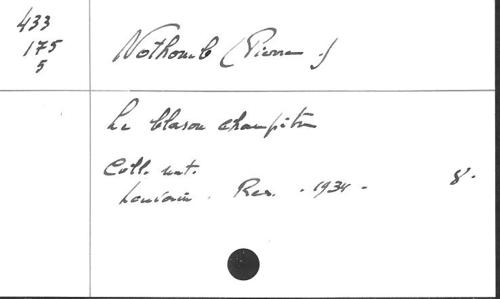 433
175
5
Nothomb (Pierre.)
Le blason champêtre
Coll. nat.
Louvain. Rex. - 1934 - 8°.